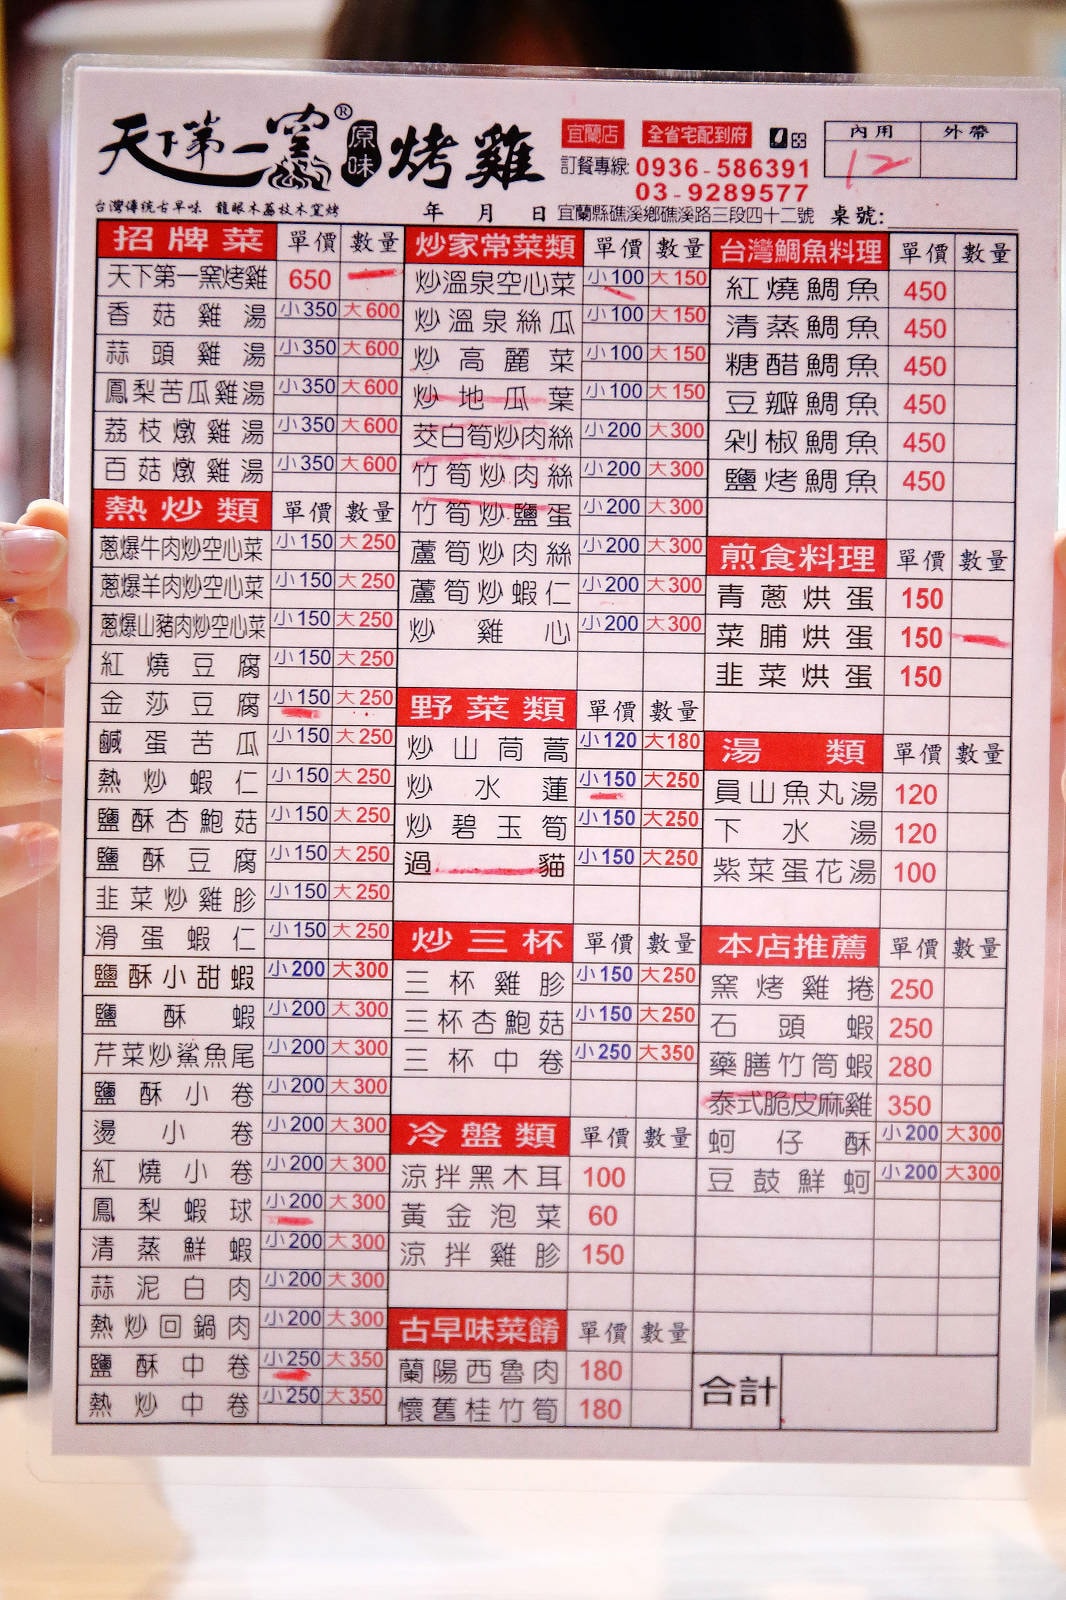 天下第一窯® 原味 烤雞
宜蘭店 全省宅配到府
訂餐專線: 0936-586391
03-9289577
內用 外帶
12
台灣傳統古早味 龍眼木荔枝木窯烤
年 月 日 宜蘭縣礁溪鄉礁溪路三段四十二號 桌號:
招牌菜 單價 數量
天下第一窯烤雞 650
香菇雞湯 小350 大600
蒜頭雞湯 小350 大600
鳳梨苦瓜雞湯 小350 大600
荔枝燉雞湯 小350 大600
百菇燉雞湯 小350 大600
熱炒類 單價 數量
蔥爆牛肉炒空心菜 小150 大250
蔥爆羊肉炒空心菜 小150 大250
蔥爆山豬肉炒空心菜 小150 大250
紅燒豆腐 小150 大250
金莎豆腐 小150 大250
鹹蛋苦瓜 小150 大250
熱炒蝦仁 小150 大250
鹽酥杏鮑菇 小150 大250
鹽酥豆腐 小150 大250
韭菜炒雞胗 小150 大250
滑蛋蝦仁 小150 大250
鹽酥小甜蝦 小200 大300
鹽酥蝦 小200 大300
芹菜炒鯊魚尾 小200 大300
鹽酥小卷 小200 大300
燙小卷 小200 大300
紅燒小卷 小200 大300
鳳梨蝦球 小200 大300
清蒸鮮蝦 小200 大300
蒜泥白肉 小200 大300
熱炒回鍋肉 小200 大300
鹽酥中卷 小250 大350
熱炒中卷 小250 大350
炒家常菜類 單價 數量
炒溫泉空心菜 小100 大150
炒溫泉絲瓜 小100 大150
炒高麗菜 小100 大150
炒地瓜葉 小100 大150
茭白筍炒肉絲 小200 大300
竹筍炒肉絲 小200 大300
竹筍炒鹽蛋 小200 大300
蘆筍炒肉絲 小200 大300
蘆筍炒蝦仁 小200 大300
炒雞心 小200 大300
野菜類 單價 數量
炒山茼蒿 小120 大180
炒水蓮 小150 大250
炒碧玉筍 小150 大250
過貓 小150 大250
炒三杯 單價 數量
三杯雞胗 小150 大250
三杯杏鮑菇 小150 大250
三杯中卷 小250 大350
冷盤類 單價 數量
涼拌黑木耳 100
黃金泡菜 60
涼拌雞胗 150
古早味菜餚 單價 數量
蘭陽西魯肉 180
懷舊桂竹筍 180
台灣鯛魚料理 單價 數量
紅燒鯛魚 450
清蒸鯛魚 450
糖醋鯛魚 450
豆瓣鯛魚 450
剁椒鯛魚 450
鹽烤鯛魚 450
煎食料理 單價 數量
青蔥烘蛋 150
菜脯烘蛋 150
韭菜烘蛋 150
湯類 單價 數量
員山魚丸湯 120
下水湯 120
紫菜蛋花湯 100
本店推薦 單價 數量
窯烤雞捲 250
石頭蝦 250
藥膳竹筒蝦 280
泰式脆皮麻雞 350
蚵仔酥 小200 大300
豆鼓鮮蚵 小200 大300
合計